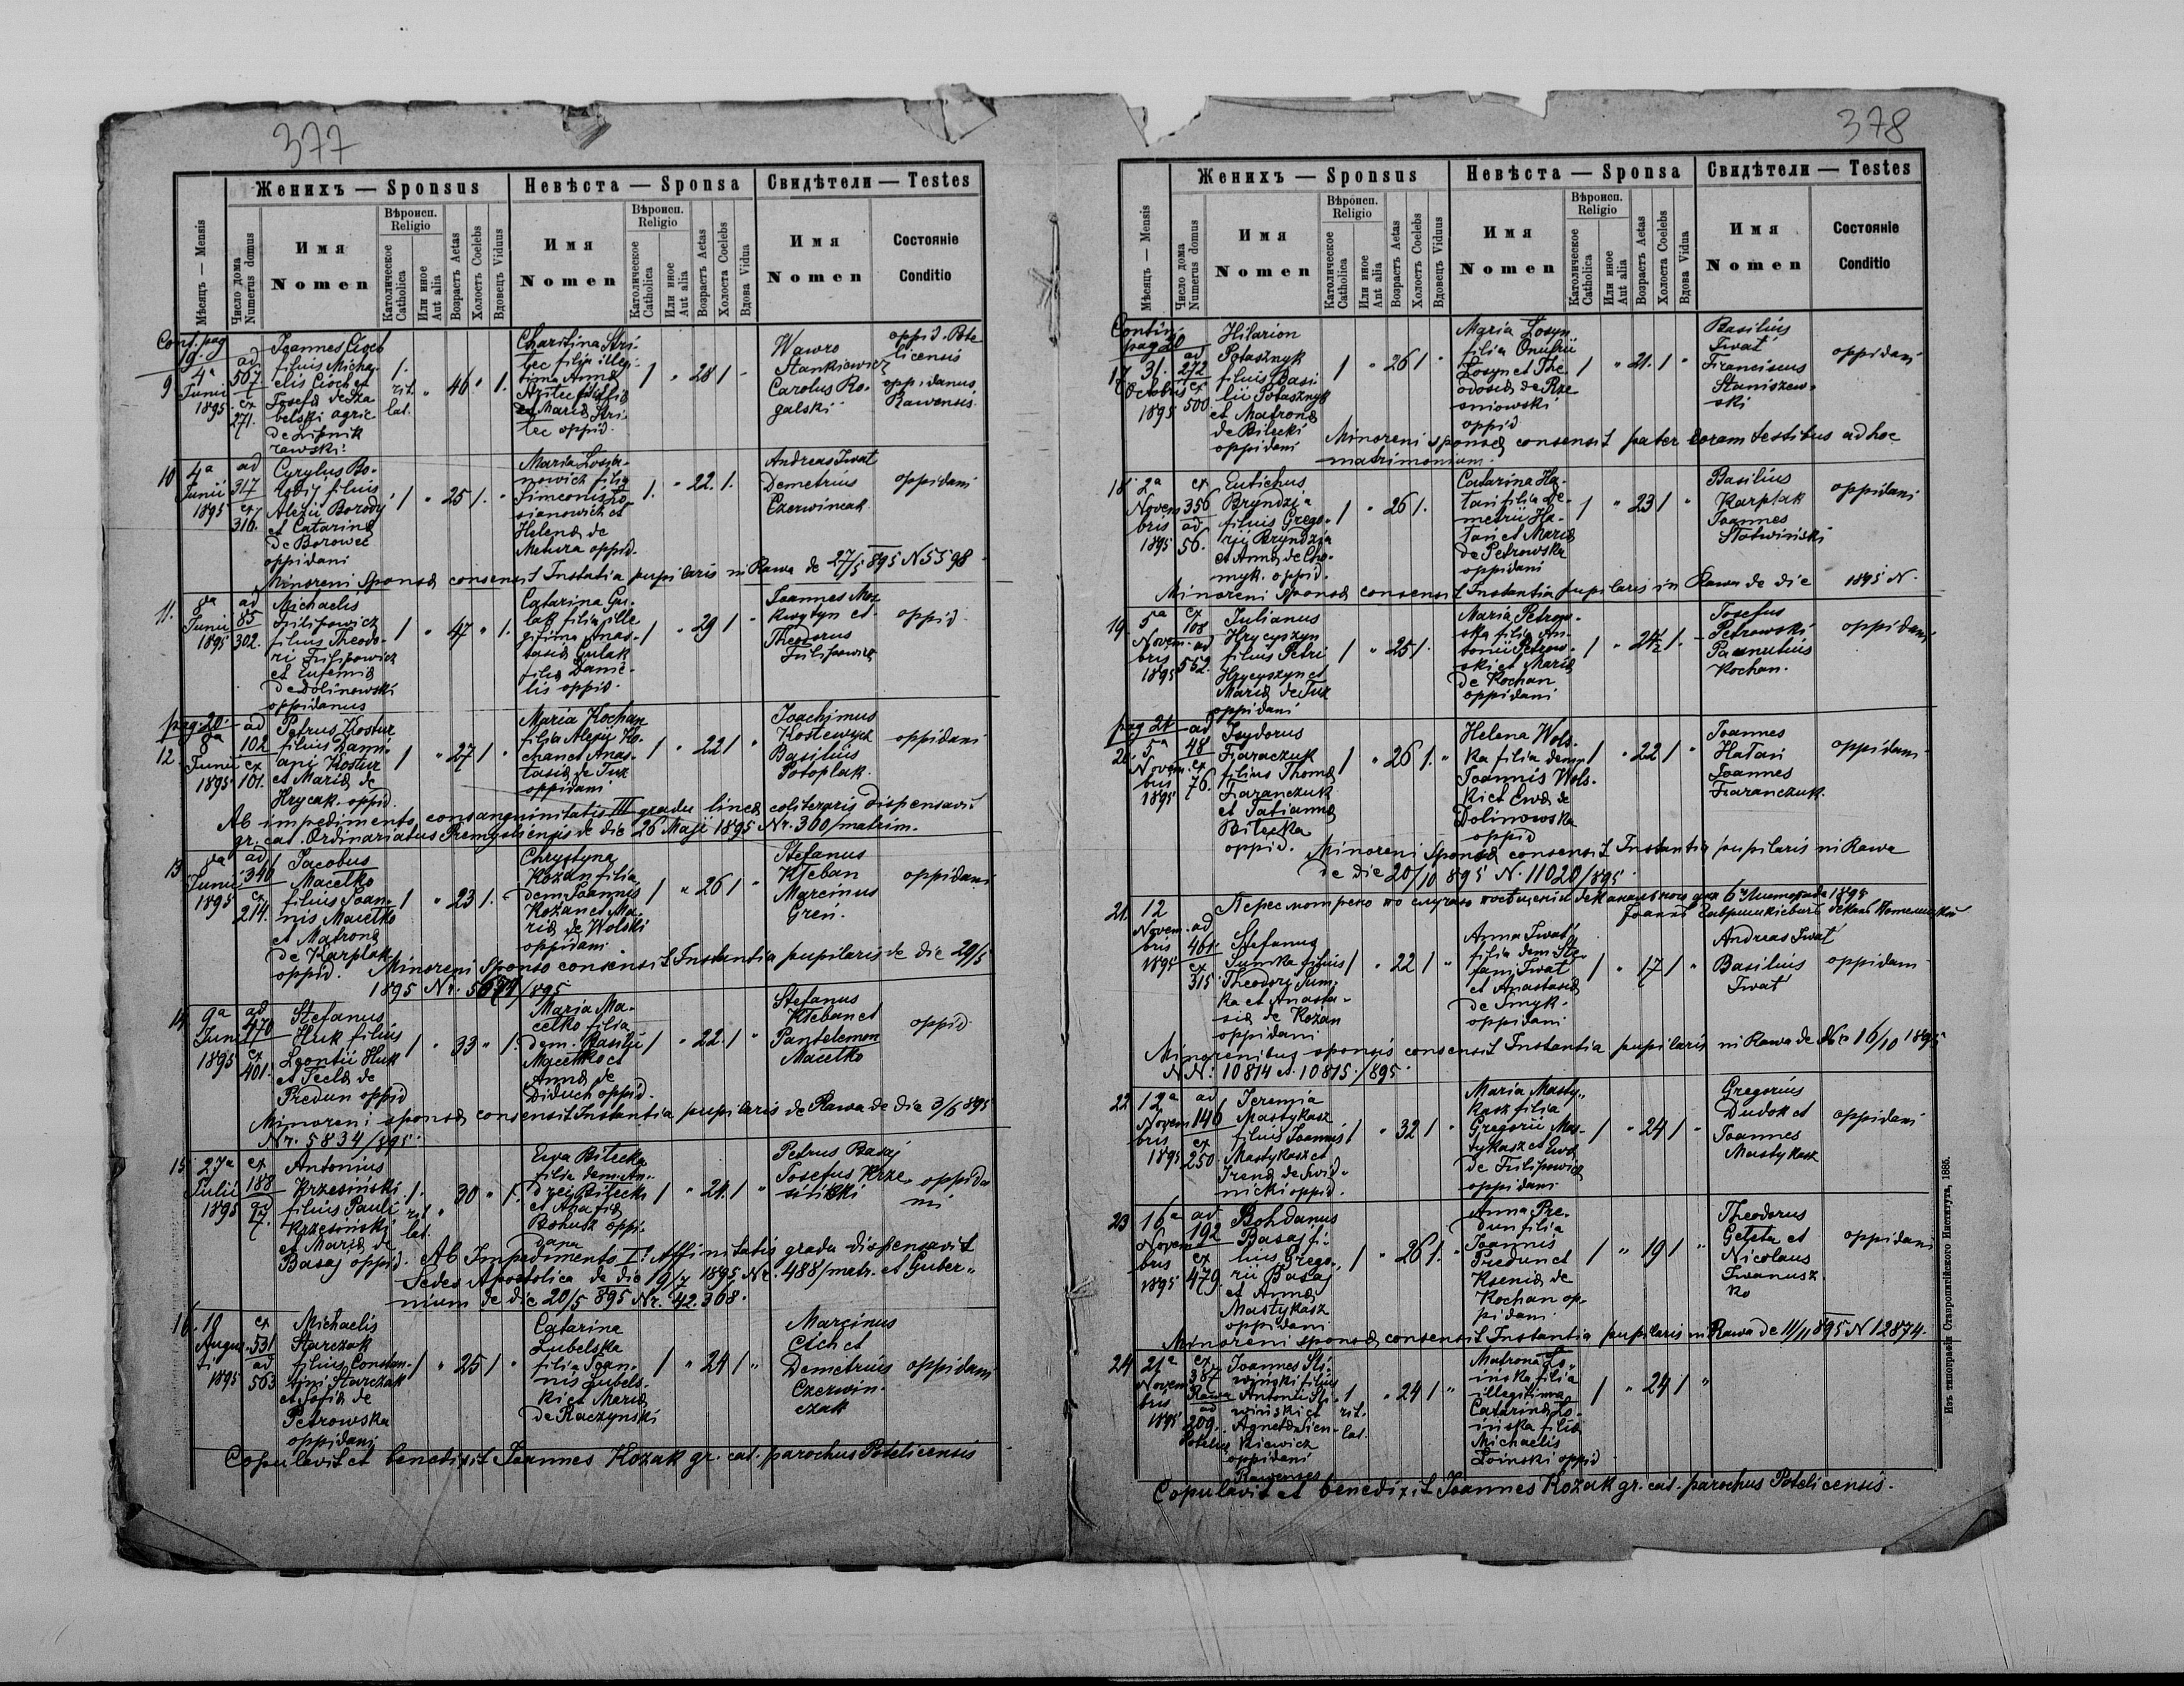 377
Женихъ — Sponsus
Невѣста — Sponsa
Свидѣтели — Testes
Мѣсяцъ — Mensis
Число дома
Numerus domus
Имя
Nomen
Вѣроисп.
Religio
Католическое
Catholica
Или иное
Aut alia
Возрастъ Aetas
Холостъ Coelebs
Вдовецъ Viduus
Имя
Nomen
Вѣроисп.
Religio
Католическое
Catholica
Или иное
Aut alia
Возрастъ Aetas
Холоста Coelebs
Вдова Vidua
Имя
Nomen
Состояніе
Conditio
Cont. pag
19.
9
4ª
Junii
1895
ad
507
ex
271.
Joannes Cioch
filius Micha-
elis Cioch et
Josefa de Dza
belski agric
de Lipnik
rawski
1.
rit.
lat.
"
46
"
1.
Charitina Stri-
lec filia illegi-
tima Anna
Strilec filia
et Maria Stri-
lec oppid.
1
"
28
1
Wawro
Stankiewicz
Carolus Ro-
galski
oppid. Pote
licensis
oppidanus
Rawensis
10
4ª
Junii
1895
ad
317
ex
316.
Cyrylus Bo-
rodij filius
Alexii Borody
et Catarina
de Borowec
oppidani
1
"
25
1.
"
Maria Losia-
nowicz filia
Simeonis Lo-
sianowicz et
Helena de
Metura oppid.
1.
"
22.
1.
Andreas Iwat
Demetrius
Czerwinczak
oppidani
Minoreni sponsa consensit Instatia pupilaris in Rawa de 27/5 895 N 5598
11.
8ª
Junii
1895
ad
85
302.
Michaelis
Filipowicz
filius Theodo-
ri Filipowicz
et Eufemia
de Dolinowski
oppidanus
1
"
47
"
1.
Catarina Gu-
lak filia ille
gitima Anas-
tasia Gulak
filia Danie-
lis oppid.
1
"
29
1
Joannes Moz
kwytyn et
Theodorus
Filipowicz
oppid.
pag. 20.
12.
8ª
Junii
1895
ad
102
ex
101.
Petrus Kostur
filius Dami-
ani Kostur
et Maria de
Hrycak oppid.
1
"
27
1
"
Maria Kochan
filia Alexii Ko-
chan et Anas-
tasia de Tuz
oppidani
1
"
22
1
"
Joachimus
Kostewycz
Basilius
Potoplak.
oppidani
Ab impedimento consanguinitatis III gradu linea coliteralis dispensavit
gr. cat. Ordinariatus Premysliensis de die 26 Maji 1895 Nr. 300/matrim.
13
8ª
Junii
1895
ad
346
ex
214.
Jacobus
Macelko
filius Joan-
nis Macelko
et Matrona
de Karplak
oppid.
1
"
23
1.
"
Chrystyna
Kozan filia
dem. Joannis
Kozan et Ma-
ria de Wolski
oppidani
1
"
26
1
"
Stefanus
Kleban
Marcinus
Gren.
oppidani
Minoreni sponso consensit Instantia pupilaris de die 29/5
1895 Nr. 5679/895
14
9ª
Junii
1895
ad
470
ex
401.
Stefanus
Huk filius
Leontii Huk
et Tecla de
Predun oppid
1
"
33
"
1.
Maria Ma-
celko filia
dem. Basilii
Macelko et
Anna de
Diduch oppid.
1
"
22.
1
"
Stefanus
Kleban et
Pantelemon
Macelko
oppid.
Minoreni sponsa consensit Instantia pupilaris de Rawa de die 3/6 895
Nr. 5834/895.
15
27ª
Julii
1895
ex
188
ad
17.
Antonius
Krzesiński
filius Pauli
Krzesiński
et Maria de
Basaj oppid.
1.
rit.
lat.
"
30
"
1.
Ewa Bilecka
filia dem. An-
drei Bilecki
et Anastasia
Bohusz oppi-
dana
1
"
24.
1
"
Petrus Basaj
Josefus Krze-
siński
oppida
ni
Ab Impedimento I: Affinitatis gradu dispensavit
Sedes Apostolica de die 19/7 1895 Nr. 488/matr. et Guber-
nium de die 20/5 895 Nr. 42.368.
16.
18
Augus-
ti
1895
ex
531
ad
563
Michaelis
Starczak
filius Constan-
tini Starczak
et Sofia de
Petrowska
oppidani
1
"
25
1
"
Catarina
Lubelska
filia Joan-
nis Lubels-
ki et Maria
de Raczynski
1
"
24
1
"
Marcinus
Cich et
Demetrius
Czerwin-
czak
oppidani
Copulavit et benedixit Joannes Kozak gr. cat. parochus Potelicensis
378
Женихъ — Sponsus
Невѣста — Sponsa
Свидѣтели — Testes
Мѣсяцъ — Mensis
Число дома
Numerus domus
Имя
Nomen
Вѣроисп.
Religio
Католическое
Catholica
Или иное
Aut alia
Возрастъ Aetas
Холостъ Coelebs
Вдовецъ Viduus
Имя
Nomen
Вѣроисп.
Religio
Католическое
Catholica
Или иное
Aut alia
Возрастъ Aetas
Холоста Coelebs
Вдова Vidua
Имя
Nomen
Состояніе
Conditio
Contin.
pag 20
17
31.
Octobris
1895
ad
272
ex
500.
Hilarion
Potasznyk
filius Basi
lii Potasznyk
et Matrona
de Bilecki
oppidani
1
"
26
1
"
Maria Losyn
filia Onufrii
Losyn et The
odosia de Rze
sniowski
oppid
1
"
21.
1
"
Basilius
Iwat
Franciscus
Staniszew-
ski
oppidani
Minoreni sponsa consensit pater coram testibus ad hoc
matrimonium.
18
2ª
Novem
bris
1895
ex
356
ad
56.
Eutichus
Bryndzia
filius Grego-
rii Bryndzia
et Anna de Cho-
myk. oppid.
1
"
26
1.
Catarina Ha-
tan filia De-
metrii Ha-
tan et Maria
de Petrowska
oppidani
1
"
23
1
"
Basilius
Karplak
Joannes
Slotwiński
oppidani
Minoreni sponsa consensit Instantia pupilaris in Rawa de die 1895 N.
19
5ª
Novem.
bris
1895
ex
108
ad
552.
Julianus
Hrycyszyn
filius Petri
Hrycyszyn et
Maria de Tuz
oppidani
1
"
25
1.
Maria Petrow-
ska filia An-
tonii Petrow-
ski et Maria
de Kochan
oppidani
1
"
24½
1.
Josefus
Petrowski
Paenutius
Kochan.
oppidani
pag 21
20.
5ª
Novem.
bris
1895
ad
48
ex
76.
Isydorus
Faraczuk
filius Thoma
Faranczuk
et Tatianna
Bilecka
oppid.
1
"
26
1.
"
Helena Wols-
ka filia dem.
Joannis Wols-
ki et Ewa de
Dolinowska
oppid
1
"
22
1
"
Joannes
Hatan
Joannes
Faranczuk.
oppidani
Minoreni sponsa consensit Instantia pupilaris in Rawa
de die 20/10 895 N. 11020/895.
Пересмотрено по случаю посѣщенія деканального дня 6 Листопада 1895
21.
12
Novem.
bris
1895
ad
461.
ex
315
Stefanus
Sumka filius
Theodori Sum-
ka et Anasta-
sia de Kozan
oppidani
1
"
22
1
"
Anna Iwat
filia dem. Ste-
fani Iwat
et Anastasia
de Smyk.
oppidani
1
"
17
1
"
Andreas Iwat
Basilius
Iwat
oppidani
Minorenibus sponsis consensit Instantia pupilaris in Rawa de die 16/10 1895
NN: 10814 et 10815/895.
22
12ª
Novem
bris
1895
ad
146
ex
250.
Jeremia
Mastykasz
filius Joannis
Mastykasz et
Irena de Swid-
nicki oppid.
1
"
32
1
"
Maria Masty-
kasz filia
Gregorii Mas-
tykasz et Ewa
de Filipowicz
oppidani
1
"
24
1
"
Gregorius
Dudok et
Joannes
Mastykasz
oppidani
23
16ª
Novem
bris
1895
ad
192
ex
479.
Bohdanus
Basaj fi-
lius Grego-
rii Basaj
et Anna
Mastykasz
oppidani
1
"
26
1.
"
Anna Pre-
dun filia
Joannis
Predun et
Ksenia de
Kochan op-
pidani
1
"
19
1
"
Theodorus
Geleta et
Nicolaus
Iwanusz
ko
oppidani
Minoreni sponsa consensit Instantia pupilaris in Rawa de 11/11 895 N 12874.
24
21ª
Novem
bris
1895
ex
387
Rawa
ad
209.
Potelic
Joannes Sli-
wiński filius
Antonii Sli-
wiński et
Agneta Wien-
kiewicz
oppidani
Rawenses
1
rit.
lat.
"
24
1
"
Matrona Lo-
inska filia
illegitima
Catarina Lo-
inska filia
Michaelis
Loinski oppid
1
"
24
1
"
Copulavit et benedixit Joannes Kozak gr. cat. parochus Potelicensis.
Изъ типографіи Ставропигійского Института, 1885.